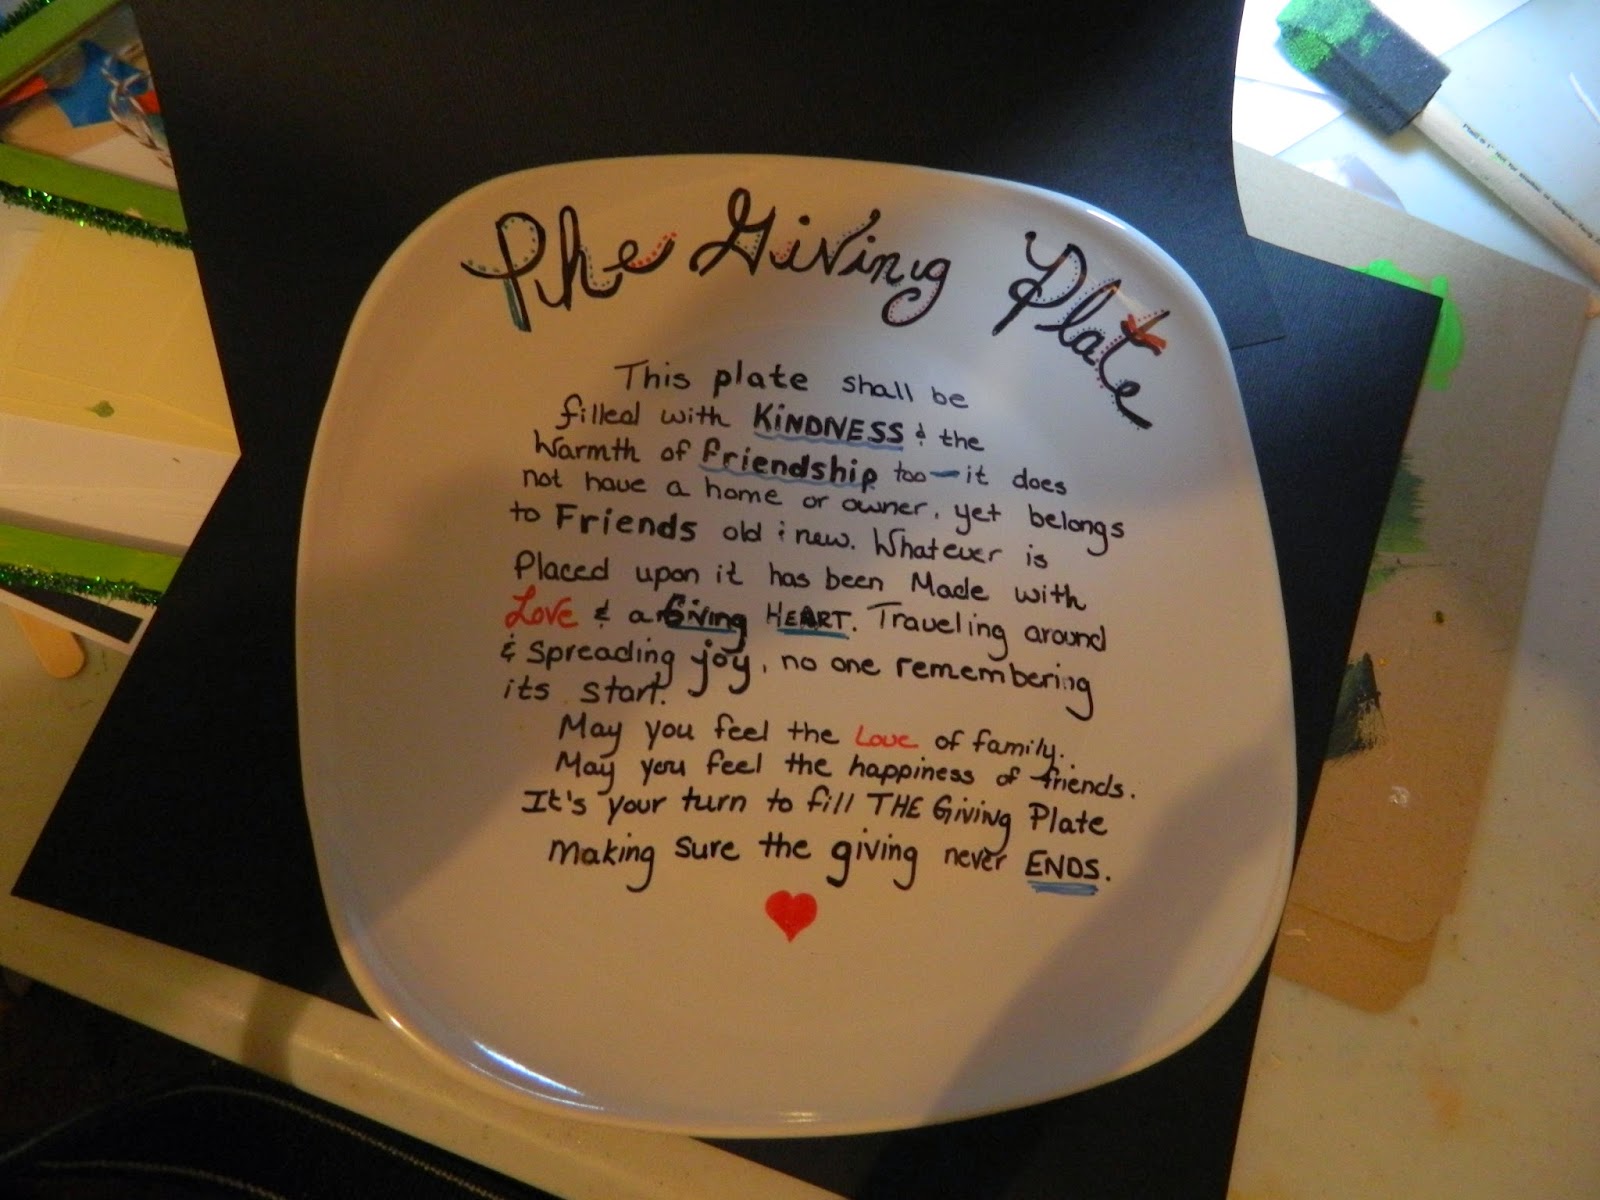 The Giving Plate
This plate shall be
filled with KiNDNESS & the
Warmth of friendship too - it does
not have a home or owner, yet belongs
to Friends old & new. Whatever is
Placed upon it has been Made with
Love & a Giving HEART. Traveling around
& spreading joy, no one remembering
its start.
May you feel the Love of family.
May you feel the happiness of friends.
It's your turn to fill THE Giving Plate
making sure the giving never ENDS.